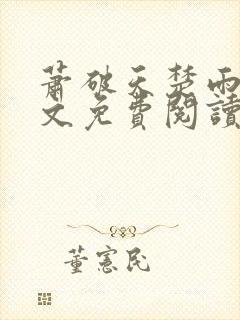 蕭破天楚雨
文免費閱讀
董憲民